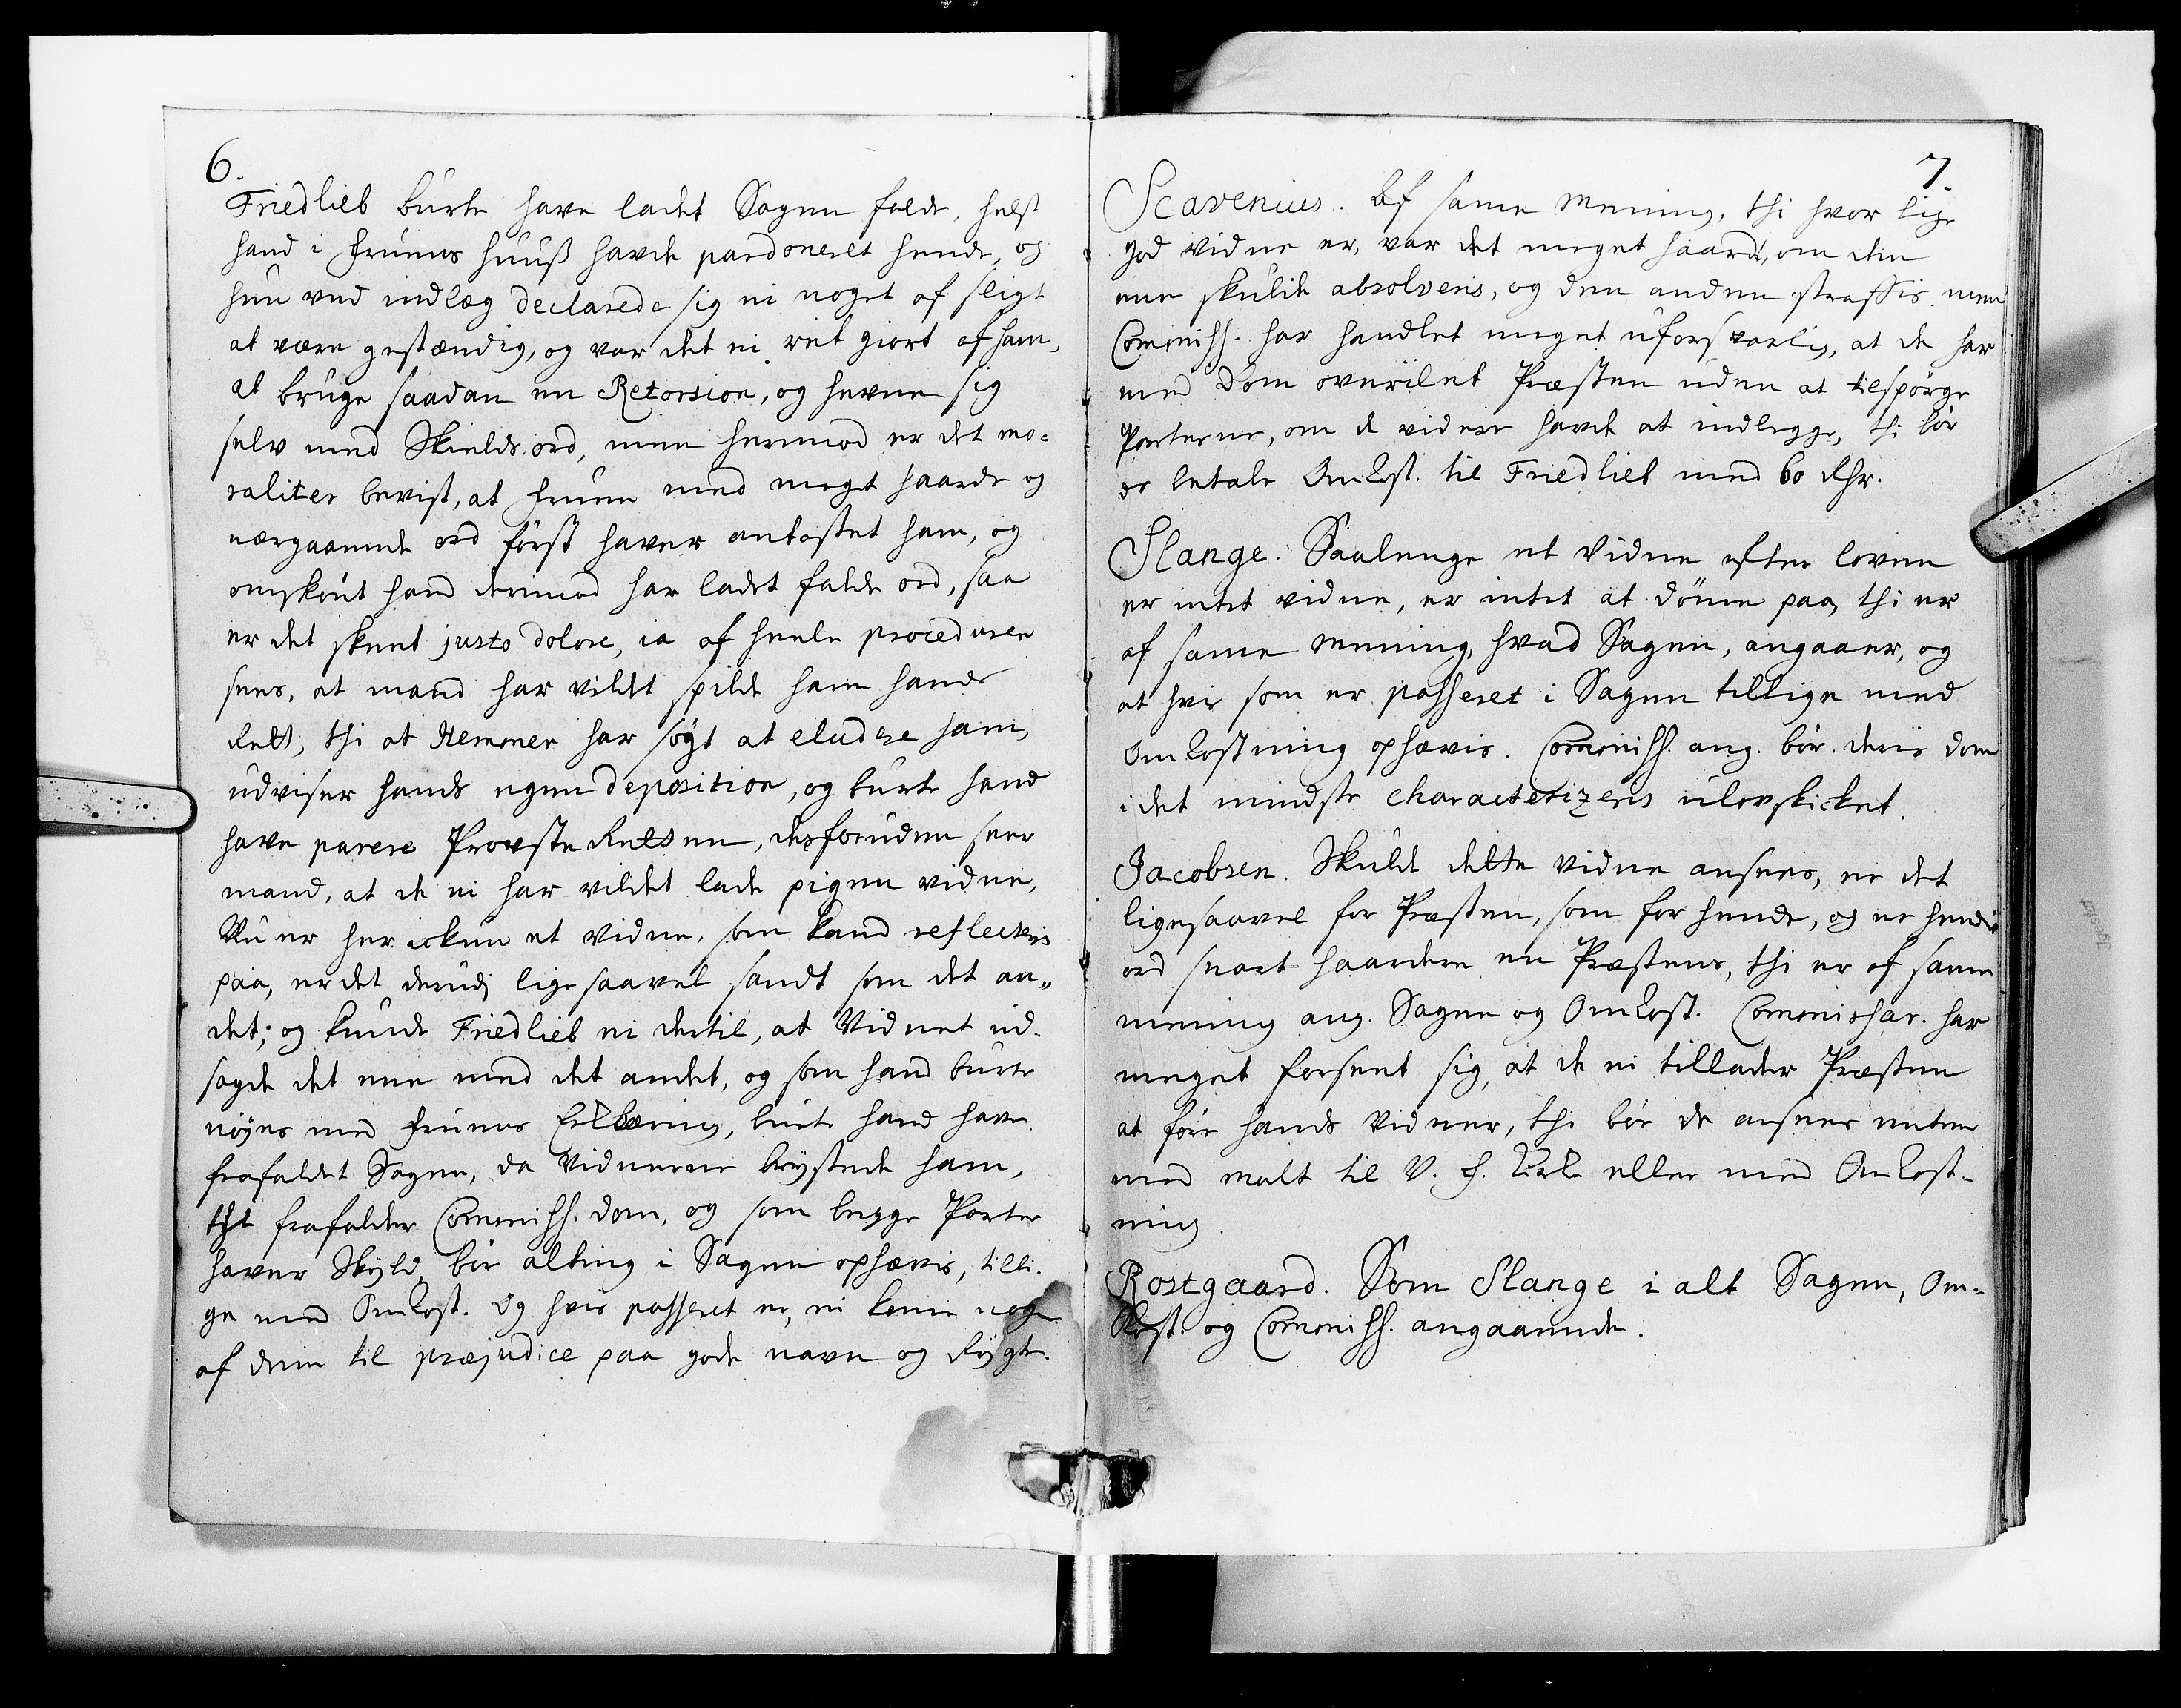 6.
Friedlieb burte have ladet Sagen falde, helst
hand i Fruens huuß havde pardoneret hende, og
hun ved indlæg declarede sig ei noget af sligt
at være gestændig, og var det ei ret giort af ham,
at bruge saadan en Retorsion, og hevne sig
selv med Skields ord, men hermod er det mo=
raliter bevist, at Fruen med meget haarde og
nærgaaende ord först haver antastet ham, og
omskönt hand derimod har ladet falde ord, saa
er det skeet justo dolore, ia af heele proceduren
sees, at mand har vildt spilde ham hands
Rett, thi at Hemmer har sögt at eludere ham,
udviser hands egen deposition, og burte hand
have parere Provste Rettsen, desforuden seer
mand, at de ei har vildet lade pigen vidne,
Nu er her ickun et vidne, som kand reflecteris
paa, er det derudj lige saavel sandt som det an„
det; og kunde Friedlieb ei dertil, at Vidnet ud-
sagde det eene med det andet, og som hand burte
nöyes med Fruens Erklæring, burte hand have
frafaldet Sagen, da Vidnerne brystede ham,
thi frafalder Commiss. dom, og som begge Parter
haver Skyld, bör alting i Sagen ophævis, tilli-
ge med Omkost. Og hvis passeret er, ei komme nogen
af dem til præjudice paa gode navn og Rygte.
7.
Scavenius. Af samme Mening, thi hvor lige
god vidne er, var det meget haardt, om den
ene skulde absolveris, og den anden straffis. men
Commiss. har handlet meget uforsvarlig, at de har
med Dom overilet Præsten uden at tilspörge
Parterne, om de videre havde at indlegge, thi bör
de betale Omkost. til Friedlieb med 60 Rdr.
Slange. Saalenge et Vidne efter loven
er intet vidne, er intet at dömme paa, thi er
af samme Mening, hvad Sagen, angaaer, og
at hvis som er passeret i Sagen tillige med
Omkostning ophævis. Commiss. ang. bör deris dom
i det mindste characterizeris ulovskicket.
Jacobsen. Skulde dette vidne ansees, er det
ligesaavel for Præsten, som for hende, og er hendes
ord snart haardere en Præstens, thi er af samme
mening ang. Sagen og Omkost. Commissar. har
meget forseet sig, at de ei tillader Præsten
at före hands Vidner, thi bör de ansees enten
med malt til V. F. Kirke eller med Omkost-
ning.
Rostgaard. Som Slange i alt Sagen, Om=
kost. og Commiss. angaaende.